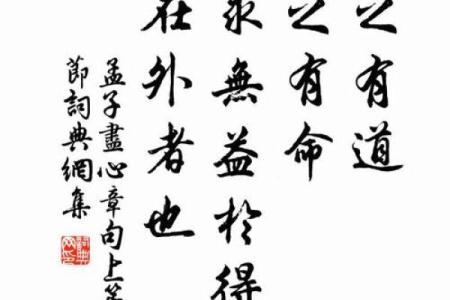 之有道
之有命
求無益於得
在外者也
孟子盡心章句上
節詞典網集